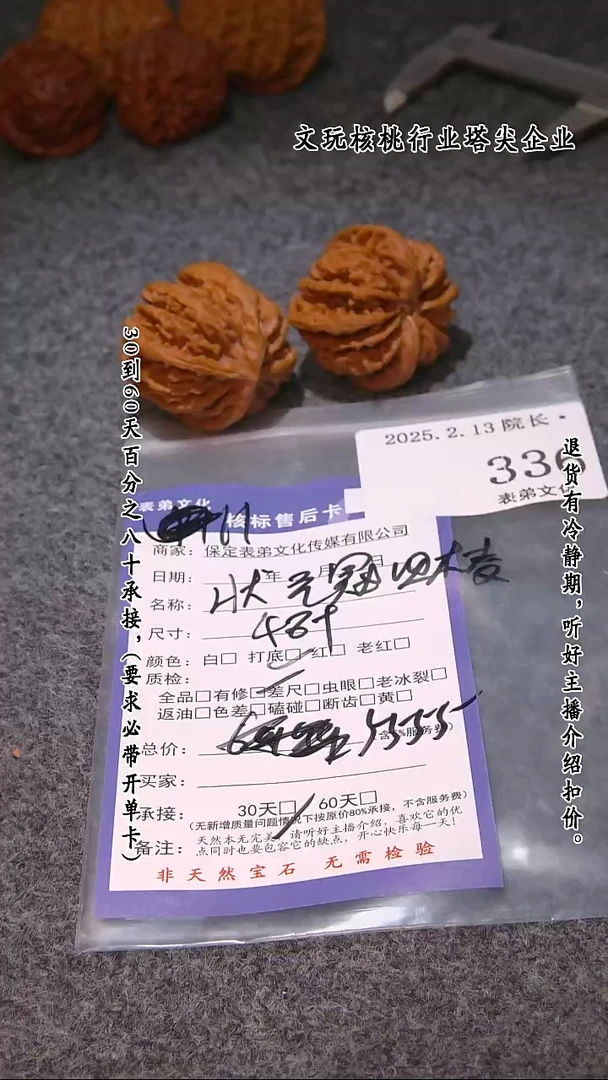 文玩核桃行业塔尖企业
30到60天百分之八十承接，(要求必带开单卡)
退货有冷静期，听好主播介绍扣价。
2025.2.13院长
336
表弟文化
表弟文化
核标售后卡
商家：保定表弟文化传媒有限公司
日期： 年 月 日
名称：状元冠四棱
尺寸：48+
颜色：白□ 打底□ 红□ 老红□
质检：
全品□有修□差尺□虫眼□老冰裂□
返油□色差□磕碰□断齿□黄□
总价： 5355
服务费)
买家：
承接： 30天□ 60天□
(无新增质量问题情况下按原价80%承接，不含服务费)
备注：天然本无完美，请听好主播介绍，喜欢它的优
点同时也要包容它的缺点，开心快乐每一天！
非天然宝石 无需检验